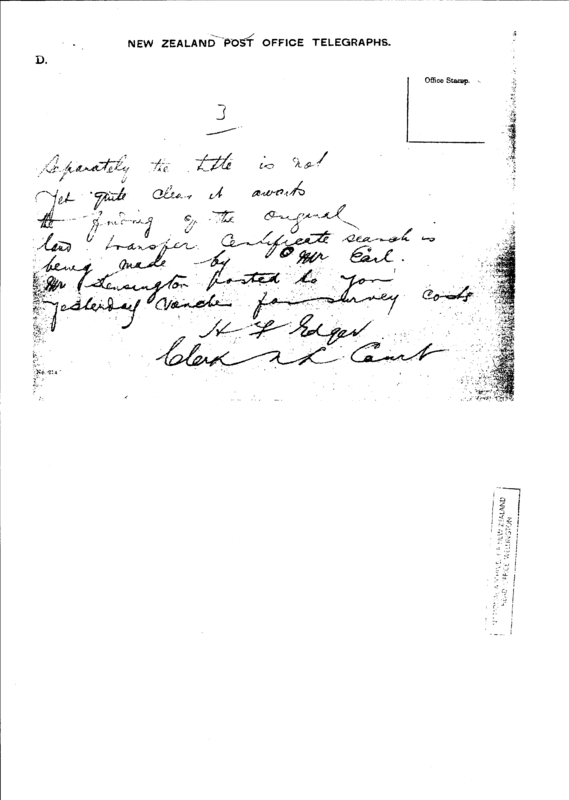 NEW ZEALAND POST OFFICE TELEGRAPHS.
D.
Office Stamp.
3
Separately the title is not
yet quite clear it awaits
the finding of the original
land transfer Certificate search is
being made by Mr Earl.
Mr Kensington posted to you
yesterday voucher for survey costs
H F Edger
Clerk N L Court
NATIONAL ARCHIVES OF NEW ZEALAND
HEAD OFFICE WELLINGTON